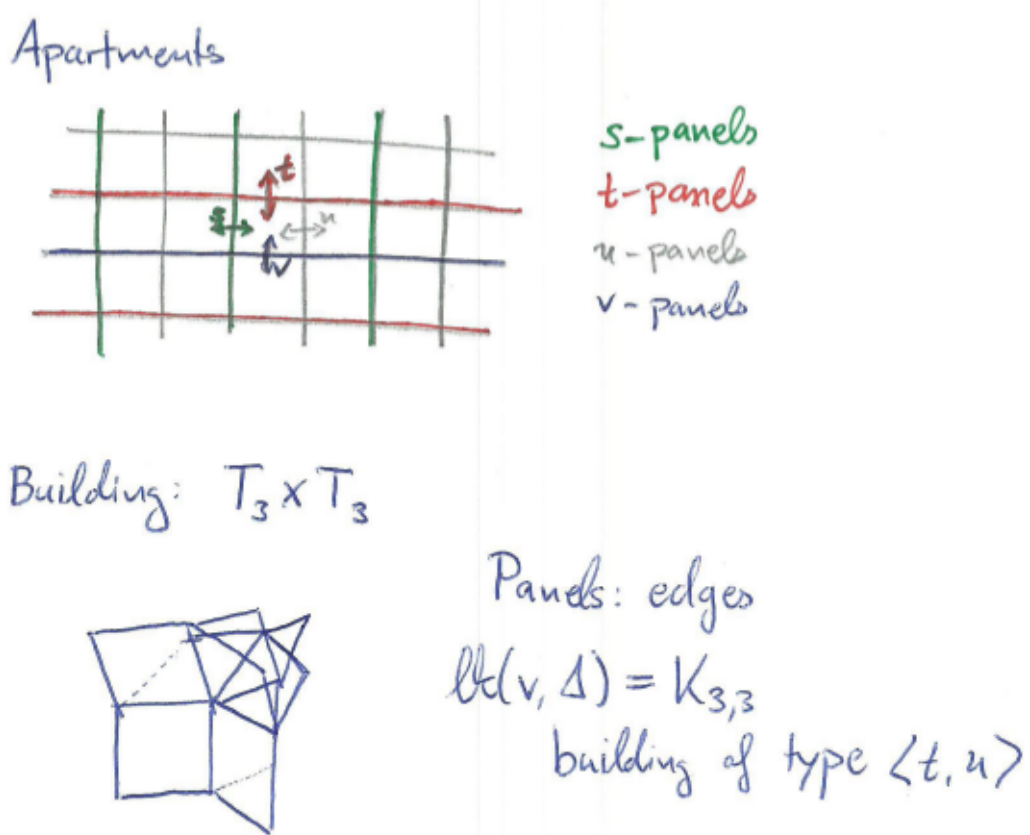 Apartments
s-panels
t-panels
u-panels
v-panels
t
s
u
v
Building: T₃ x T₃
Panels: edges
lk(v, Δ) = K₃,₃
building of type ⟨t, u⟩